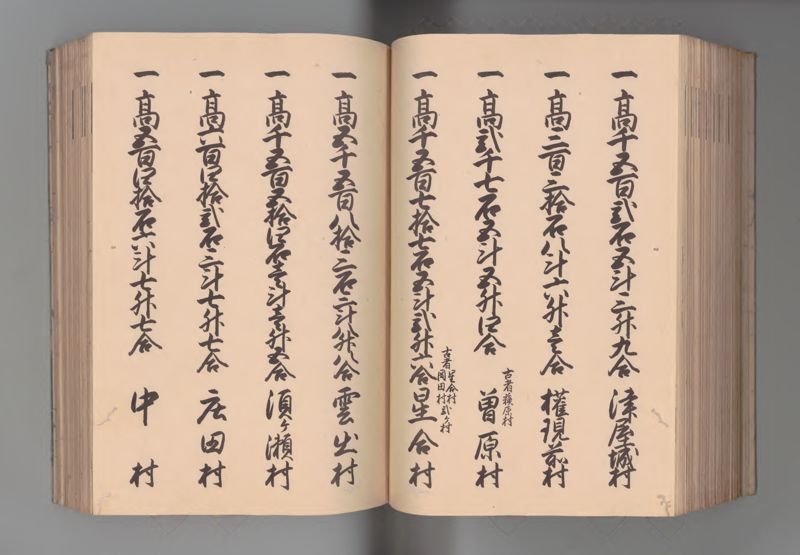 一 高千五百弐石五斗三升九合 津屋城村
一 高三百三拾石八斗六升壱合 権現前村
一 高弐千七石五斗五升四合 曽原村
古者横原村
一 高千五百七拾七石五斗弐升六合 星合村
古者星合村
岡田村弐ヶ村
一 高五千五百八拾三石三斗八升八合 雲出村
一 高千五百五拾四石壱斗壱升五合 須ヶ瀬村
一 高六百四拾弐石三斗七升七合 庄田村
一 高五百四拾石六斗七升七合 中村